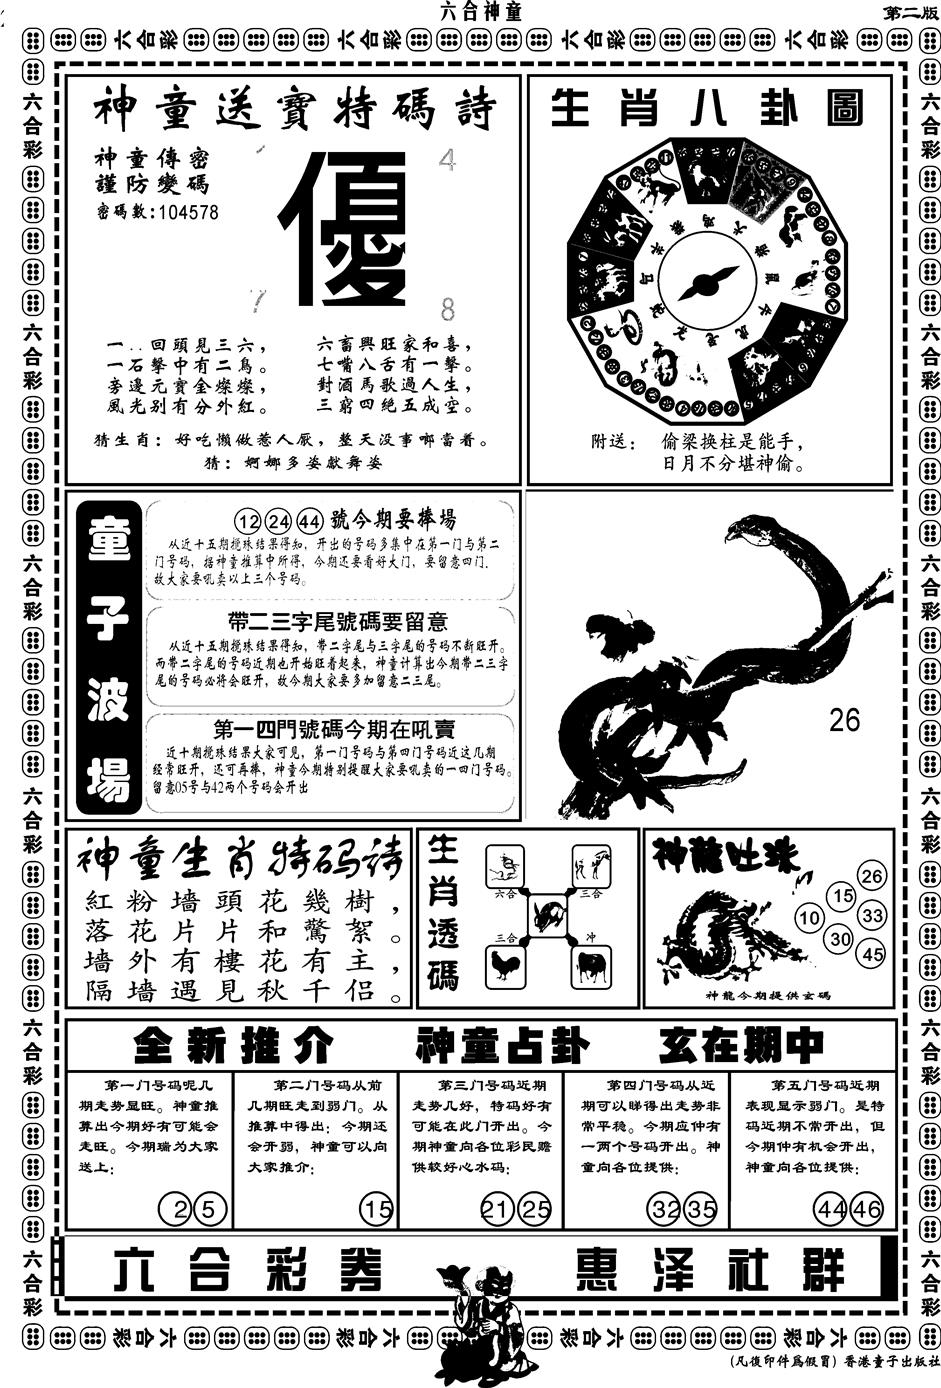 六合神童
第二版
神童送寶特碼詩
神童傳密
謹防變碼
密碼數:104578
優
4
7
8
一..回頭見三六，
一石擊中有二鳥。
旁邊元寶金燦燦，
風光别有分外紅。
六畜興旺家和喜，
七嘴八舌有一擊。
對酒馬歌過人生，
三窮四絕五成空。
猜生肖：好吃懒做惹人厭，整天没事啷當着。
猜：婀娜多姿獻舞姿
生肖八卦圖
附送： 偷梁换柱是能手，
日月不分堪神偷。
童子波場
12 24 44 號今期要捧場
从近十五期搅珠结果得知，开出的号码多集中在第一门与第二
门号码，据神童推算中所得，今期还要看好大门，要留意四门.
故大家要吼卖以上三个号码。
帶二三字尾號碼要留意
从近十五期搅珠结果得知，带二字尾与三字尾的号码不断旺开。
而带二字尾的号码近期也开始旺着起来，神童计算出今期带二三字
尾的号码必将会旺开，故今期大家要多加留意二三尾。
第一四門號碼今期在吼賣
近十期搅珠结果大家可见，第一门号码与第四门号码近这几期
经常旺开，还可再捧，神童今期特别提醒大家要吼卖的一四门号码。
留意05号与42两个号码会开出
26
神童生肖特码诗
紅粉墻頭花幾樹，
落花片片和驚絮。
墻外有樓花有主，
隔墻遇見秋千侶。
生肖透碼
六合
三合
三合
冲
神龍吐珠
26
15
10
33
30
45
神龍今期提供玄碼
全新推介 神童占卦 玄在期中
第一门号码呢几
期走势显旺。神童推
算出今期好有可能会
走旺。今期瑞为大家
送上：
2 5
第二门号码从前
几期旺走到弱门。从
推算中得出：今期还
会开弱，神童可以向
大家推介：
15
第三门号码近期
走势几好，特码好有
可能在此门开出。今
期神童向各位彩民赡
供较好心水码：
21 25
第四门号码从近
期可以睇得出走势非
常平稳。今期应仲有
一两个号码开出。神
童向各位提供：
32 35
第五门号码近期
表现显示弱门。是特
码近期不常开出，但
今期仲有机会开出，
神童向各位提供：
44 46
六合彩券 惠泽社群
(凡復印件爲假冒) 香港童子出版社